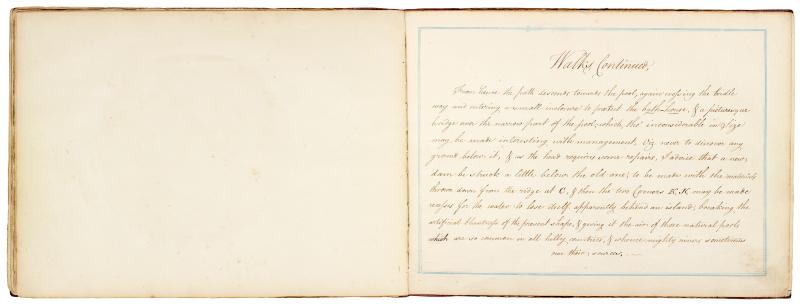 Walks Continued.
From hence the path descends towards the pool, again crossing the bridle
way and entering a small inclosure to protect the bath-house, & a picturesque
bridge over the narrow part of the pool, which, tho' inconsiderable in size
may be made interesting with management, Viz never to discover any
ground below it, & as the head requires some repairs, I advise that a new
dam be struck a little below the old one; to be made with the materials
thrown down from the ridge at C, & then the two Corners K.K. may be made
recesses for the water to lose itself apparently behind an island; breaking the
artificial bluntness of the present shape, & giving it the air of those natural pools
which are so common in all hilly countries, & whence mighty rivers sometimes
owe their sources.